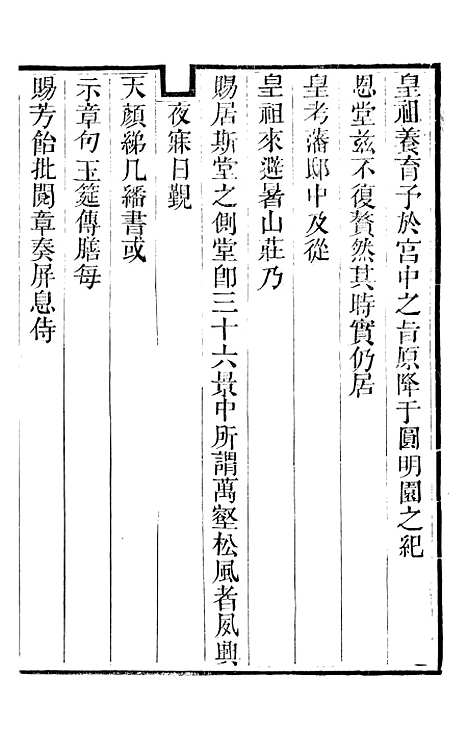 皇祖養育予於宮中之旨原降于圓明園之紀
恩堂茲不復贅然其時實仍居
皇考藩邸中及從
皇祖來避暑山莊乃
賜居斯堂之側堂卽三十六景中所謂萬壑松風者夙興
夜寐日覲
天顏綈几繙書或
示章句玉筵傳膳每
賜芳飴批閱章奏屏息侍